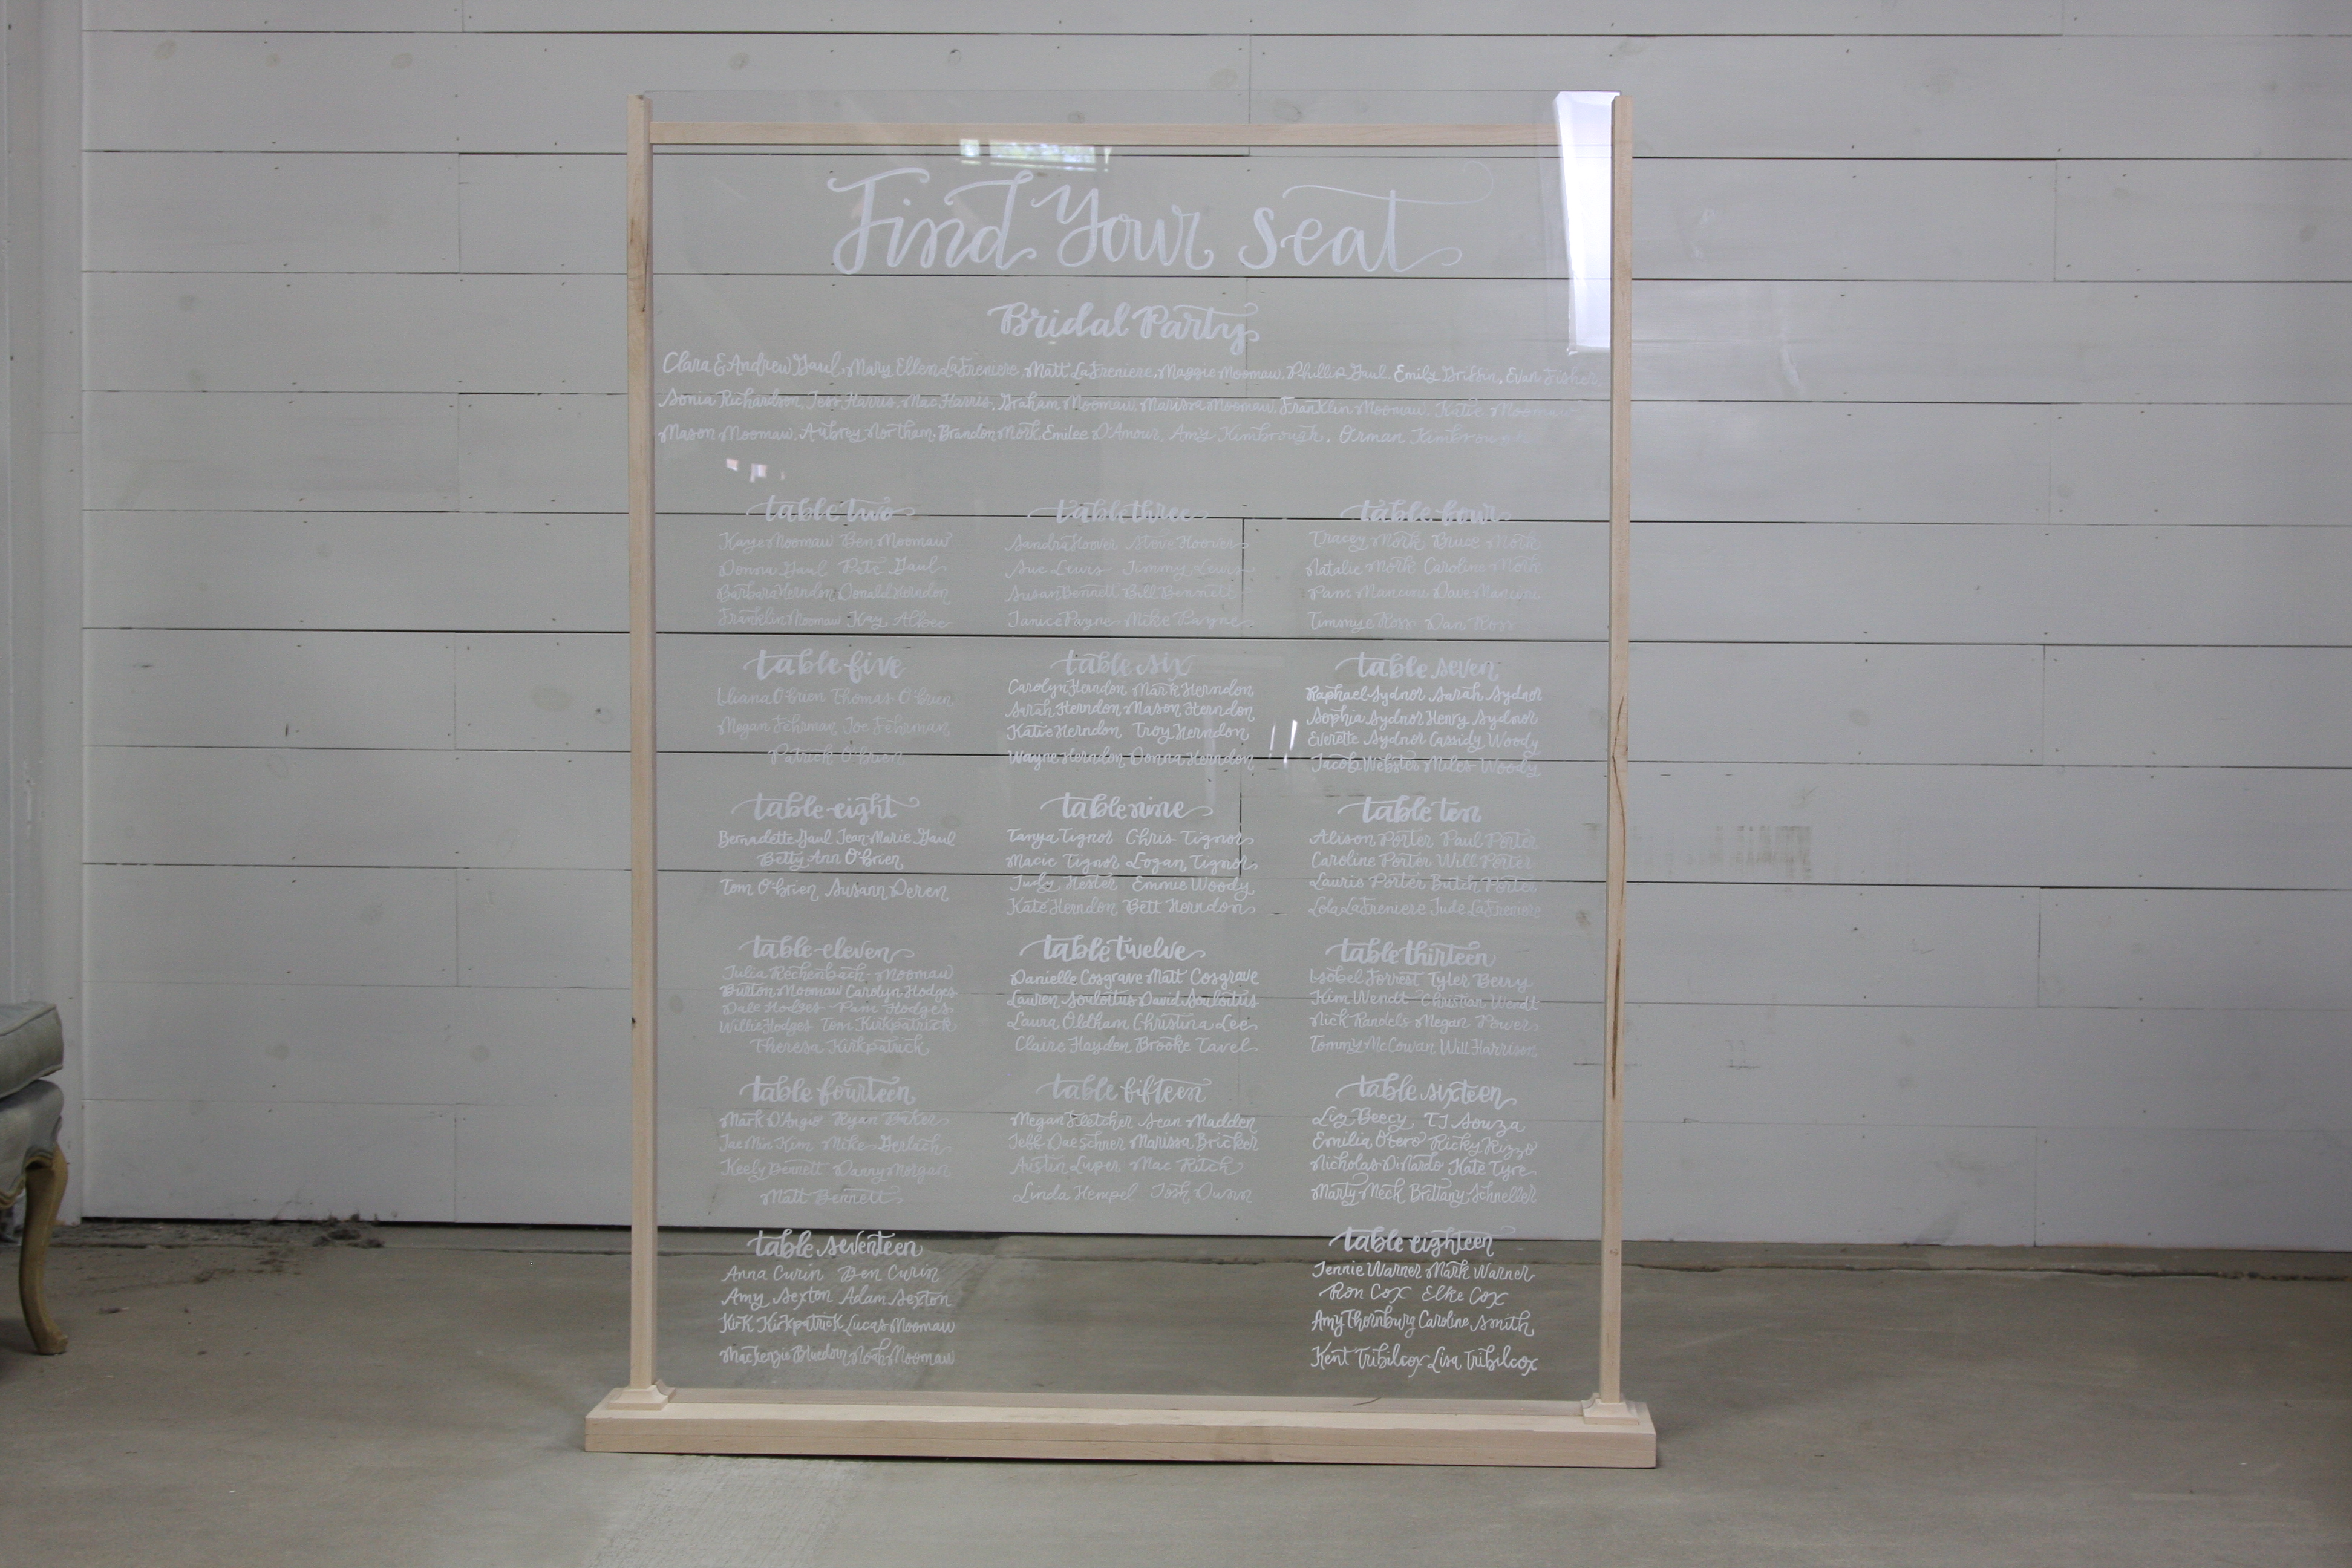 Find Your Seat
Bridal Party
Clara & Andrew Gaul, Mary Ellen LaFreniere, Matt LaFreniere, Maggie Moomaw, Phillip Gaul, Emily Griffin, Evan Fisher,
Sonia Richardson, Jess Harris, Mac Harris, Graham Moomaw, Marissa Moomaw, Franklin Moomaw, Katie Moomaw
Mason Moomaw, Aubrey Northam, Brandon Mörk, Emilee D'Amour, Amy Kimbrough, Orman Kimbrough
table two
Kaye Moomaw Ben Moomaw
Donna Gaul Pete Gaul
Barbara Herndon Donald Herndon
Franklin Moomaw Kay
table three
Sandra Hoover Steve Hoover
Sue Lewis Jimmy Lewis
Susan Bennett Bill Bennett
Janice Payne Mike Payne
table four
Tracey Mörk Bruce Mörk
Natalie Mörk Caroline Mörk
Pam Mancini Dave Mancini
Timmye Ross Dan Ross
table five
Liliana O'Brien Thomas O'Brien
Megan Fehrman Joe Fehrman
Patrick O'Brien
table six
Carolyn Herndon Mark Herndon
Sarah Herndon Mason Herndon
Katie Herndon Troy Herndon
Wayne Herndon Donna Herndon
table seven
Raphael Sydnor Sarah Sydnor
Sophia Sydnor Henry Sydnor
Everette Sydnor Cassidy Woody
Jacob Webster Miles Woody
table eight
Bernadette Gaul Jean-Marie Gaul
Betty Ann O'Brien
Tom O'Brien Susann Deren
table nine
Tanya Tignor Chris Tignor
Macie Tignor Logan Tignor
Judy Hester Emmie Woody
Kate Herndon Bett Herndon
table ten
Alison Porter Paul Porter
Caroline Porter Will Porter
Laurie Porter Butch Porter
Lola LaFreniere Jude LaFreniere
table eleven
Julia Rechenbach Moomaw
Burton Moomaw Carolyn Hodges
Dale Hodges Pam Hodges
Willie Hodges Tom Kirkpatrick
Theresa Kirkpatrick
table twelve
Danielle Cosgrave Matt Cosgrave
Lauren Soulottus David Souloitus
Laura Oldham Christina Lee
Claire Hayden Brooke Tavel
table thirteen
Isobel Forrest Tyler Berry
Kim Wendt Christian Wendt
Nick Randels Megan Powers
Tommy McCowan Will Harrison
table fourteen
Mark D'Angio Ryan Baker
Jae Min Kim Mike Gerlach
Keely Bennett Danny Morgan
Matt Bennett
table fifteen
Megan Fletcher Sean Madden
Jeff Daeschner Marissa Bricker
Austin Luper Mac Ritch
Linda Hempel Josh Dunn
table sixteen
Liz Beecy TJ Souza
Emilia Otero Ricky Rizzo
Nicholas DiNardo Kate Tyre
Marty Meck Brittany Schneller
table seventeen
Anna Curin Ben Curin
Amy Sexton Adam Sexton
Kirk Kirkpatrick Lucas Moomaw
Mackenzie Bluedorn Noah Moomaw
table eighteen
Jennie Warner Mark Warner
Ron Cox Elke Cox
Amy Thornburg Caroline Smith
Kent Tribilcox Lisa Tribilcox